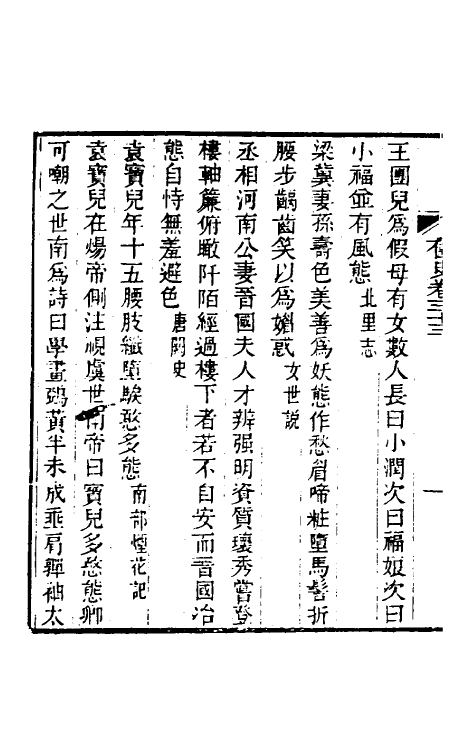 王團兒爲假母有女數人長曰小潤次曰福娘次曰
小福並有風態北里志
梁冀妻孫壽色美善爲妖態作愁眉啼粧墮馬髻折
腰步齲齒笑以爲媚惑女世説
丞相河南公妻晉國夫人才辨强明資質瓌秀嘗登
樓軸簾俯瞰阡陌經過樓下者若不自安而晉國冶
態自恃無羞避色唐闕史
袁寶兒年十五腰肢纖墮騃憨多態南部煙花記
袁寶兒在煬帝側注視虞世南帝曰寶兒多憨態卿
可嘲之世南爲詩曰學畫鵶黃半未成垂肩嚲袖太
卷二十三
一